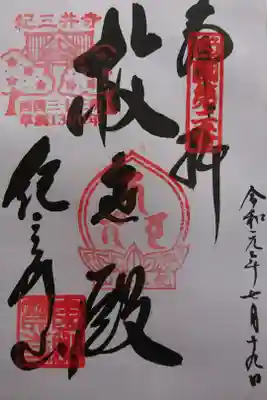 奉拝
西国第二番
救世殿
紀三井寺
令和元年七月十九日
紀三井寺
西国三十三所
草創1300年